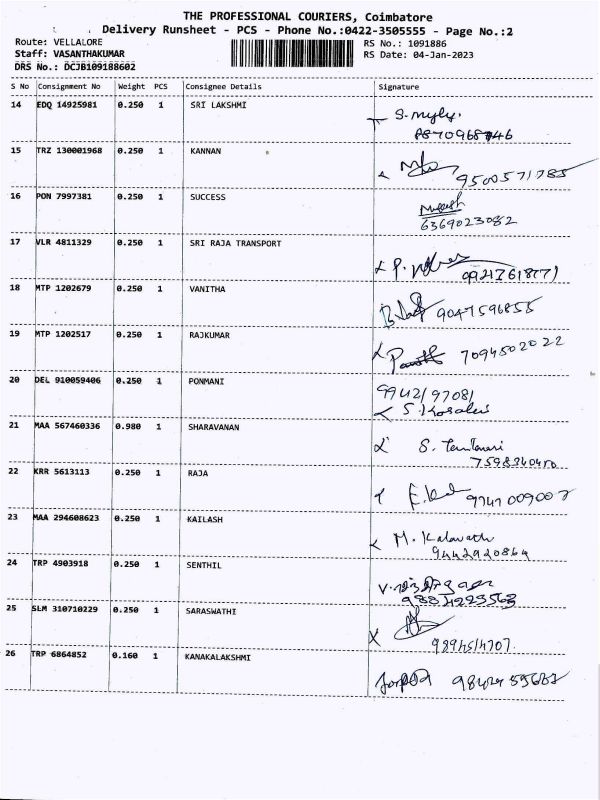 THE PROFESSIONAL COURIERS, Coimbatore
Delivery Runsheet - PCS - Phone No.:0422-3505555 - Page No.:2
Route: VELLALORE RS No.: 1091886
Staff: VASANTHAKUMAR RS Date: 04-Jan-2023
DRS No.: DCJB109188602
S No Consignment No Weight PCS Consignee Details Signature
14 EDQ 14925981 0.250 1 SRI LAKSHMI
15 TRZ 130001968 0.250 1 KANNAN
9500571785
16 PON 7997381 0.250 1 SUCCESS
6369023082
17 VLR 4811329 0.250 1 SRI RAJA TRANSPORT
18 MTP 1202679 0.250 1 VANITHA
9047596855
19 MTP 1202517 0.250 1 RAJKUMAR
7094502022
20 DEL 910059406 0.250 1 PONMANI
9942197081
21 MAA 567460336 0.980 1 SHARAVANAN
22 KRR 5613113 0.250 1 RAJA
23 MAA 294608623 0.250 1 KAILASH
M. Kalavath
9442920864
24 TRP 4903918 0.250 1 SENTHIL
25 SLM 310710229 0.250 1 SARASWATHI
9894514707
26 TRP 6864852 0.160 1 KANAKALAKSHMI